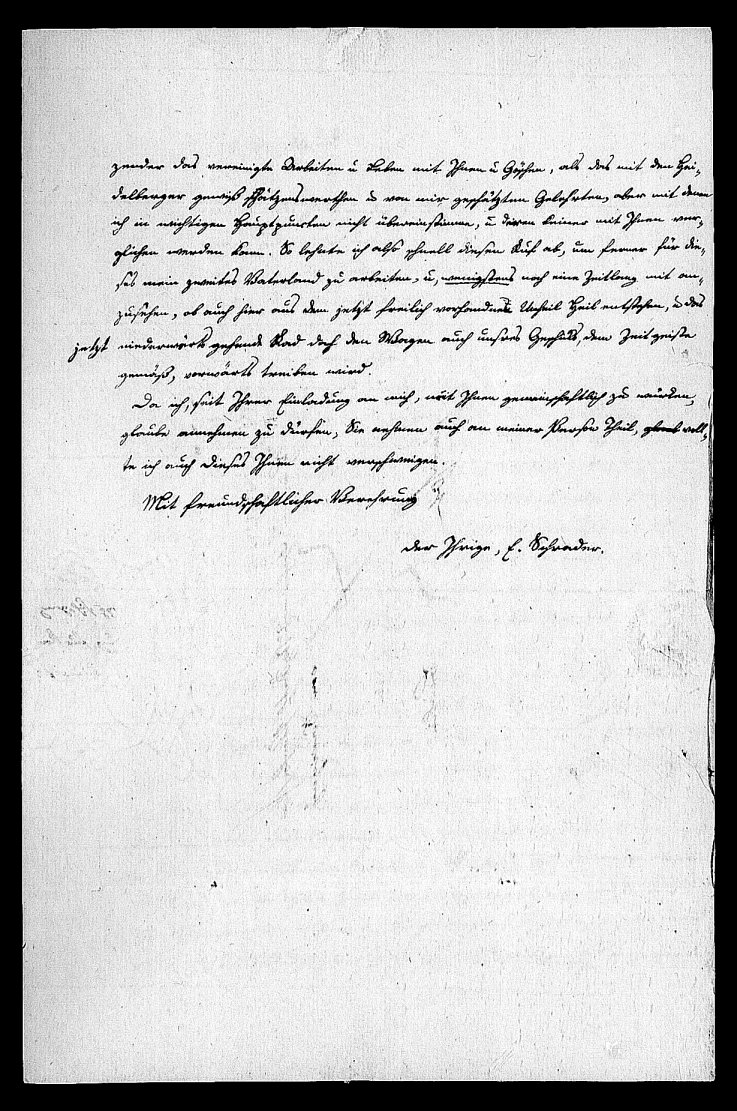 zender das vereinigte Arbeiten u Leben mit Ihnen u Göschen, als das mit den Hei-
delberger gewiß schätzenswerthen u von mir geschätzten Gelehrten, aber mit denen
ich in wichtigen Hauptpuncten nicht übereinstimme, u deren keiner mit Ihnen ver-
glichen werden kann. So lehnte ich also schnell diesen Ruf ab, um ferner für die-
ses mein zweites Vaterland zu arbeiten, u, wenigstens noch eine Zeitlang mit an-
zusehen, ob auch hier aus dem jetzt freilich vorhandnen Unheil Heil entstehe, u das
jetzt niederwärts gehende Rad doch den Wagen auch unsres Geschicks, dem Zeitgeiste
gemäß, vorwärts treiben wird.
Da ich, seit Ihrer Einladung an mich, mit Ihnen gemeinschaftlich zu wirken,
glaube annehmen zu dürfen, Sie nehmen auch an meiner Person Theil, woll-
te ich auch dieses Ihnen nicht verschweigen.
Mit freundschaftlicher Verehrung
der Ihrige, E. Schrader.